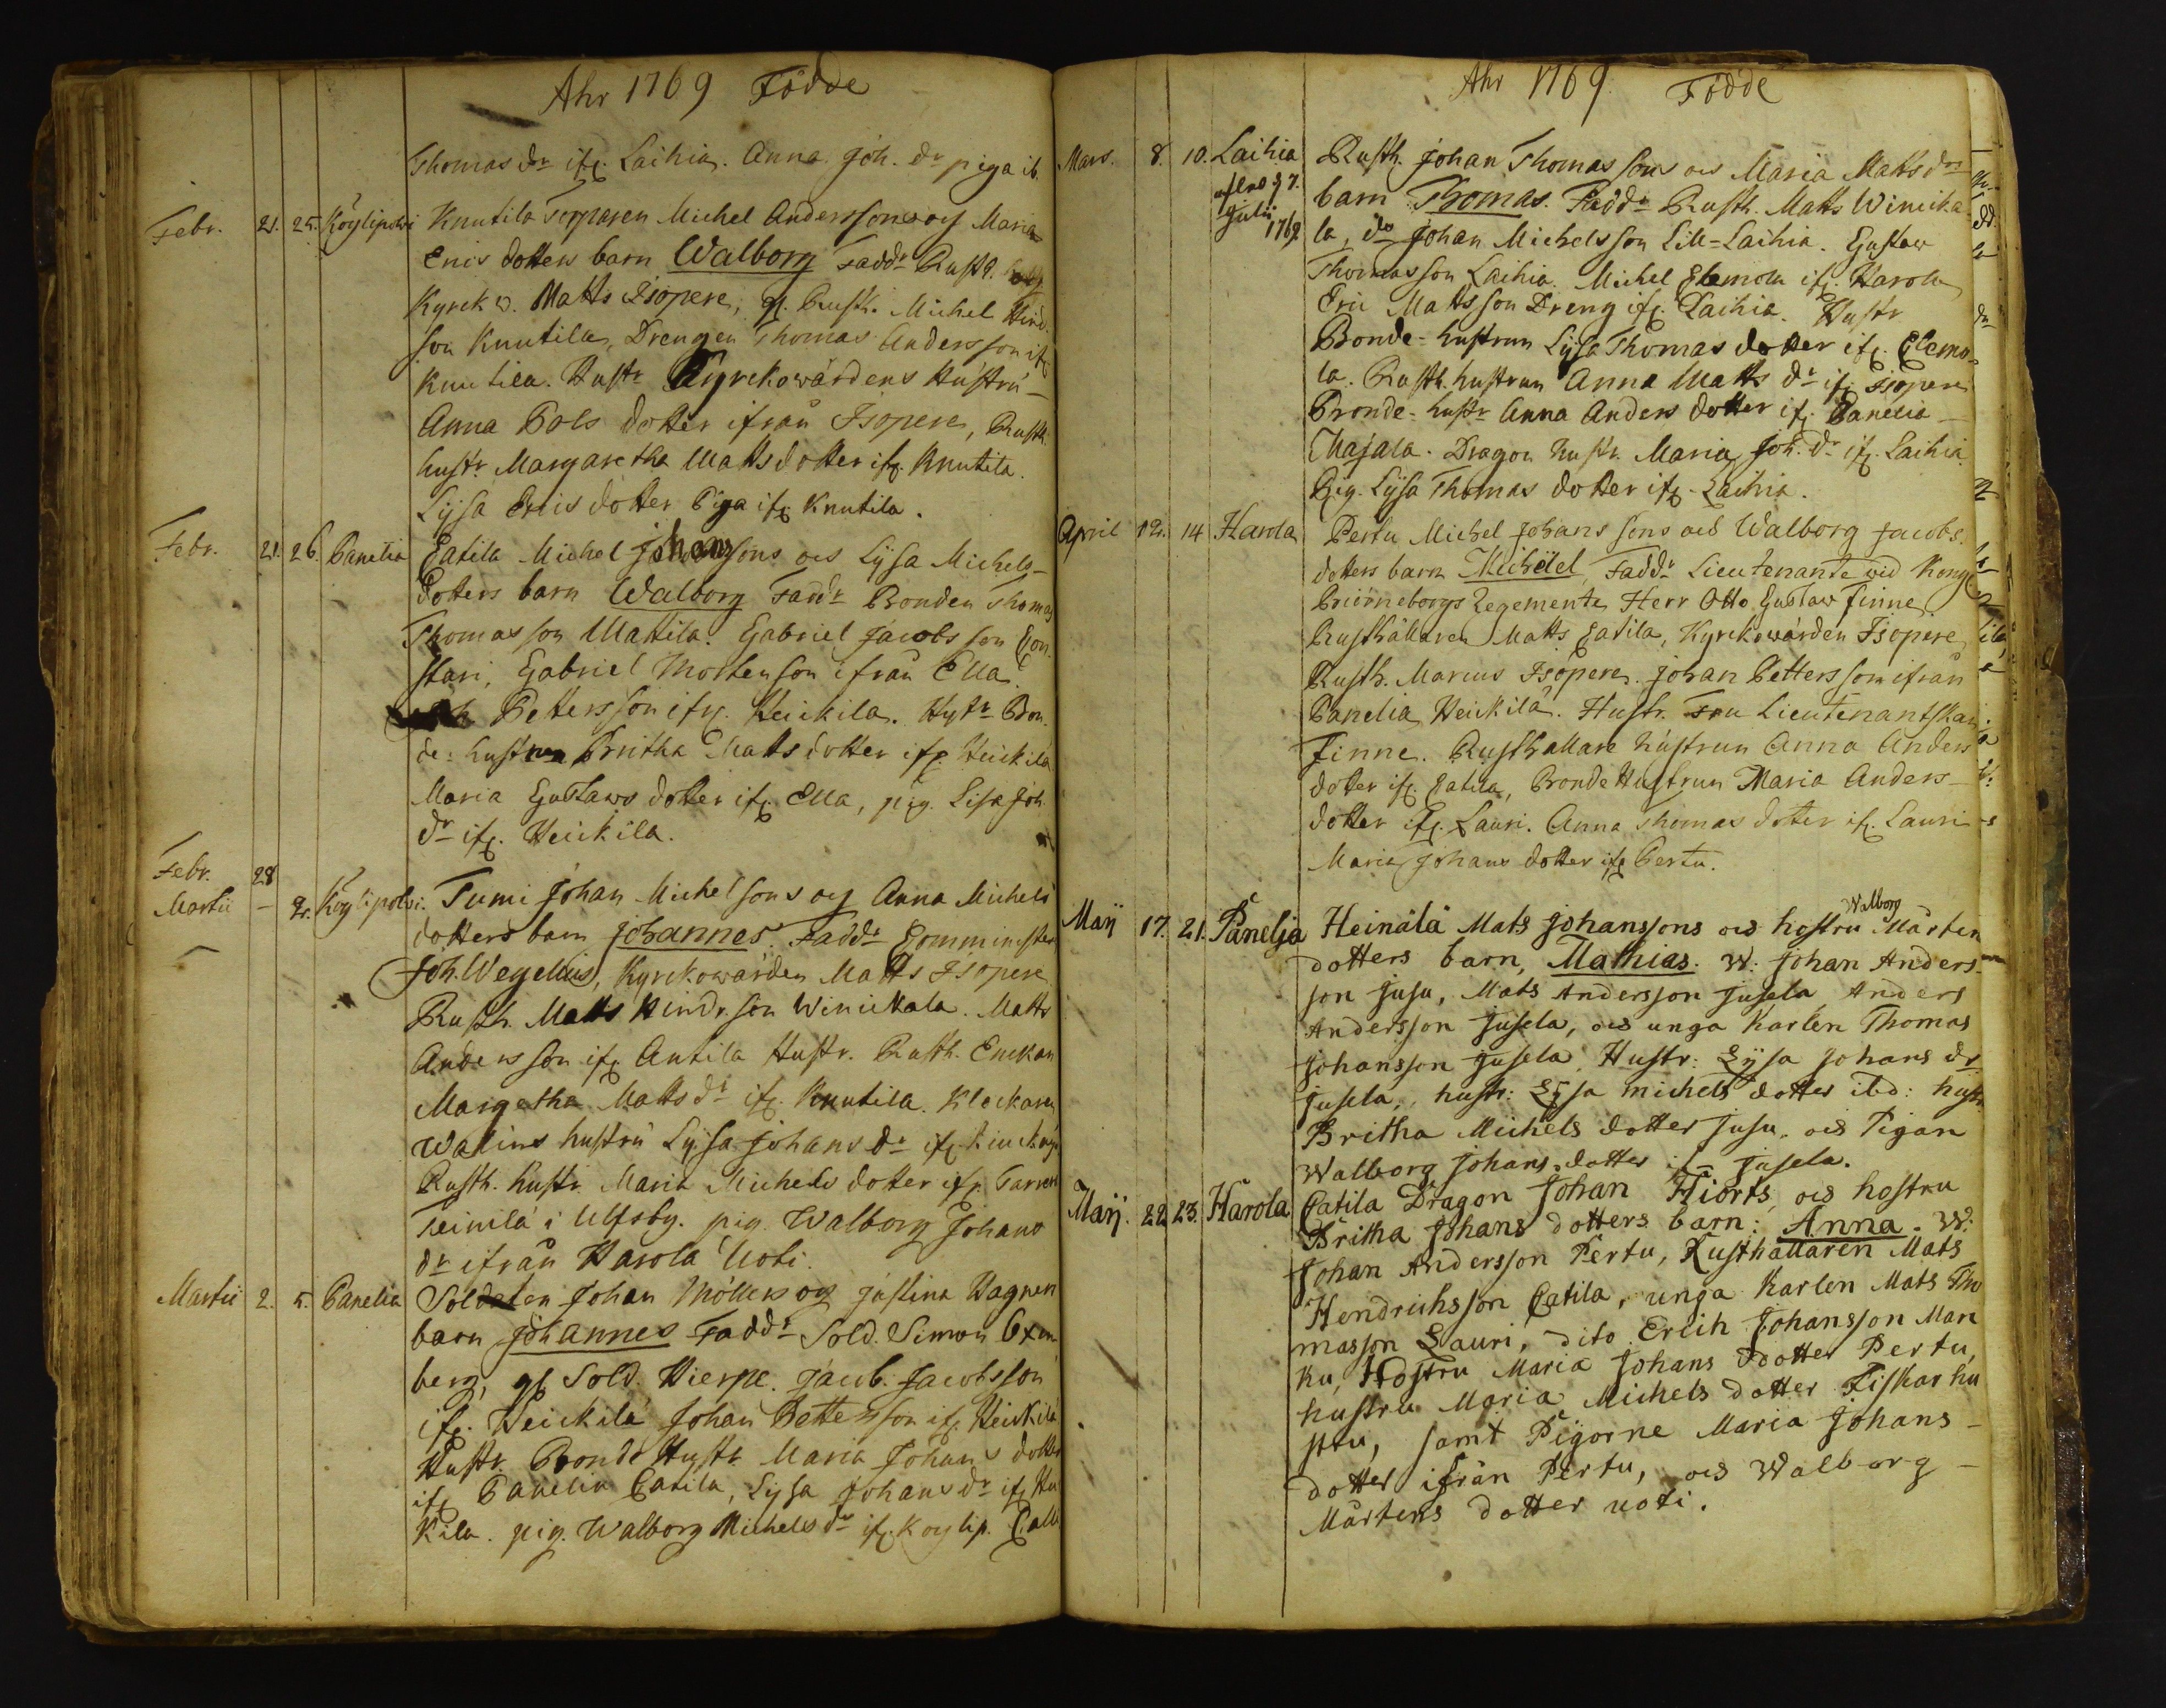 Ahr 1769 Födde
Thomas dr ifr. Laihia. Anna Joh. dr piga ib.
Febr. 21. 25. Köylipolvi Knutila Torparen Michel Anderssons och Maria
Erics dotters barn Walborg Faddr Rusth.
Kyrckw. Matts Isopere, gl. Rusth. Michel Hind.
son Knutila, Drengen Thomas Andersson if
Knutila. Hustr Kyrckowärdens Hustru
Anna Pols dotter ifrån Isopere, Rusth.
hustr. Margaretha Mattsdotter ifr. Knutila.
Lysa Erics dotter Piga ifr Knutila.
Febr. 21. 26. Panelia Eatila Michel Johanssons och Lysa Michels-
dotters barn Walborg Faddr Bonden Thomas
Thomasson Mattila. Gabriel Jacobsson
stari, Gabriel Mortenson ifrån Ella.
Pettersson ifr. Heickilä. Hustr Bon-
de-hustrun Britha Matts dotter ifr Heickilä
Maria Gustaws dotter ifr. Ella, pig. Lisa Joh.
dr ifr. Heickilä.
Febr. 28
Martii - 2. Köylipolvi. Tumi Johan Michelsons och Anna Michels
dotters barn Johannes. Faddr Comminister
Joh. Wegelius, Kyrckowärden Matts Isopere
Rusth. Matts Hindr.son Winickala. Matts
Andersson ifr Antila Hustr. Rusth. Enckan
Margetha Mattsdr ifr. Knutila. Klockaren
Walins hustru Lysa Johans dr ifr.
Rusth. hustr. Maria Michels dotter ifr.
Teinilä i Ulfsby. pig. Walborg Johans
dr ifrån Harola Uoti.
Martii 2. 5. Panelia Soldaten Johan Möllers och Justina Hagren
barn Johannes Faddr Sold. Simon Oxen
berg, gl Sold. Hierpe. Jacob Jacobsson
ifr. Heickilä Johan Pettersson ifr. Heickilä
Hustr. Bonde Hustr. Maria Johans dotter
ifr Panelia Eatila, Lysa Johans dr ifr Hu
kila. pig. Walborg Michels dr ifr. Köylip.
Ahr 1769 Födde
Mars. 8. 10. Laihia Rusth. Johan Thomassons och Maria Matts drs
afled d 7. Julii 1769.
barn Thomas. Faddr Rusth. Matts Winicka
la, do Johan Michelsson Lill-Laihia. Gustaw
Thomasson Laihia. Michel Elemola ifr. Harola
Eric Matsson Dreng ifr. Laihia. Hustr
Bonde-hustrun Lysa Thomas dotter ifr. Elemo-
la. Rusth. hustrun Anna Matts dr ifr. Isopere
Bonde-hustr Anna Anders dotter ifr. Panelia
Majala. Dragon hustr. Maria Joh. dr ifr. Laihia
Pig. Lysa Thomas dotter ifr. Laihia.
April 12. 14 Harola Pertu Michel Johans sons och Walborg Jacobs
dotters barn Michäel, Faddr Lieutenante wid Kongl
Briörneborgs Regemente Herr Otto Gustaw Finne.
Rusthållaren Matts Eatila, Kyrckowärden Isopere
Rusth. Marcus Isopere. Johan Pettersson ifrån
Panelia Heickilä. Hustr. Fru Lieutenantskan
Finne. Rusthållare hustrun Anna Anders
dotter ifr. Eatila, Bonde Hustrun Maria Anders-
dotter ifr. Lauri. Anna Thomas dotter ifr. Lauri
Maria Johans dotter ifr Pertu.
Maij 17. 21. Panelja Heinälä Mats Johanssons och hustru Walborg Mårten
dotters barn, Mathias. W: Johan Anders-
son Jusu, Mats Andersson Jusela Anders
Andersson Jusela, och unga Karlen Thomas
Johansson Jusela. Hustr: Lysa Johans dr
Jusela, hustr: Lysa michels dotter ibd: hustr.
Britha Michels dotter Jusu. och Pigan
Walborg Johans dotter if- Jusela.
Maij. 22 23 Harola Eatila Dragon Johan Hiorts, och hostru
Britha Johans dotters barn: Anna. W:
Johan Andersson Pertu, Rusthållaren Mats
Hendrichsson Eatila, unga Karlen Mats Tho
masson Lauri, dito Erich Johansson Man
ku, Hostru Maria Johans dotter Pertu,
hustru Maria Michels dotter Fiskarhu
stu, samt Pigorne Maria Johans-
dotter ifrån Pertu, och Walborg-
Mårtens dotter uoti.